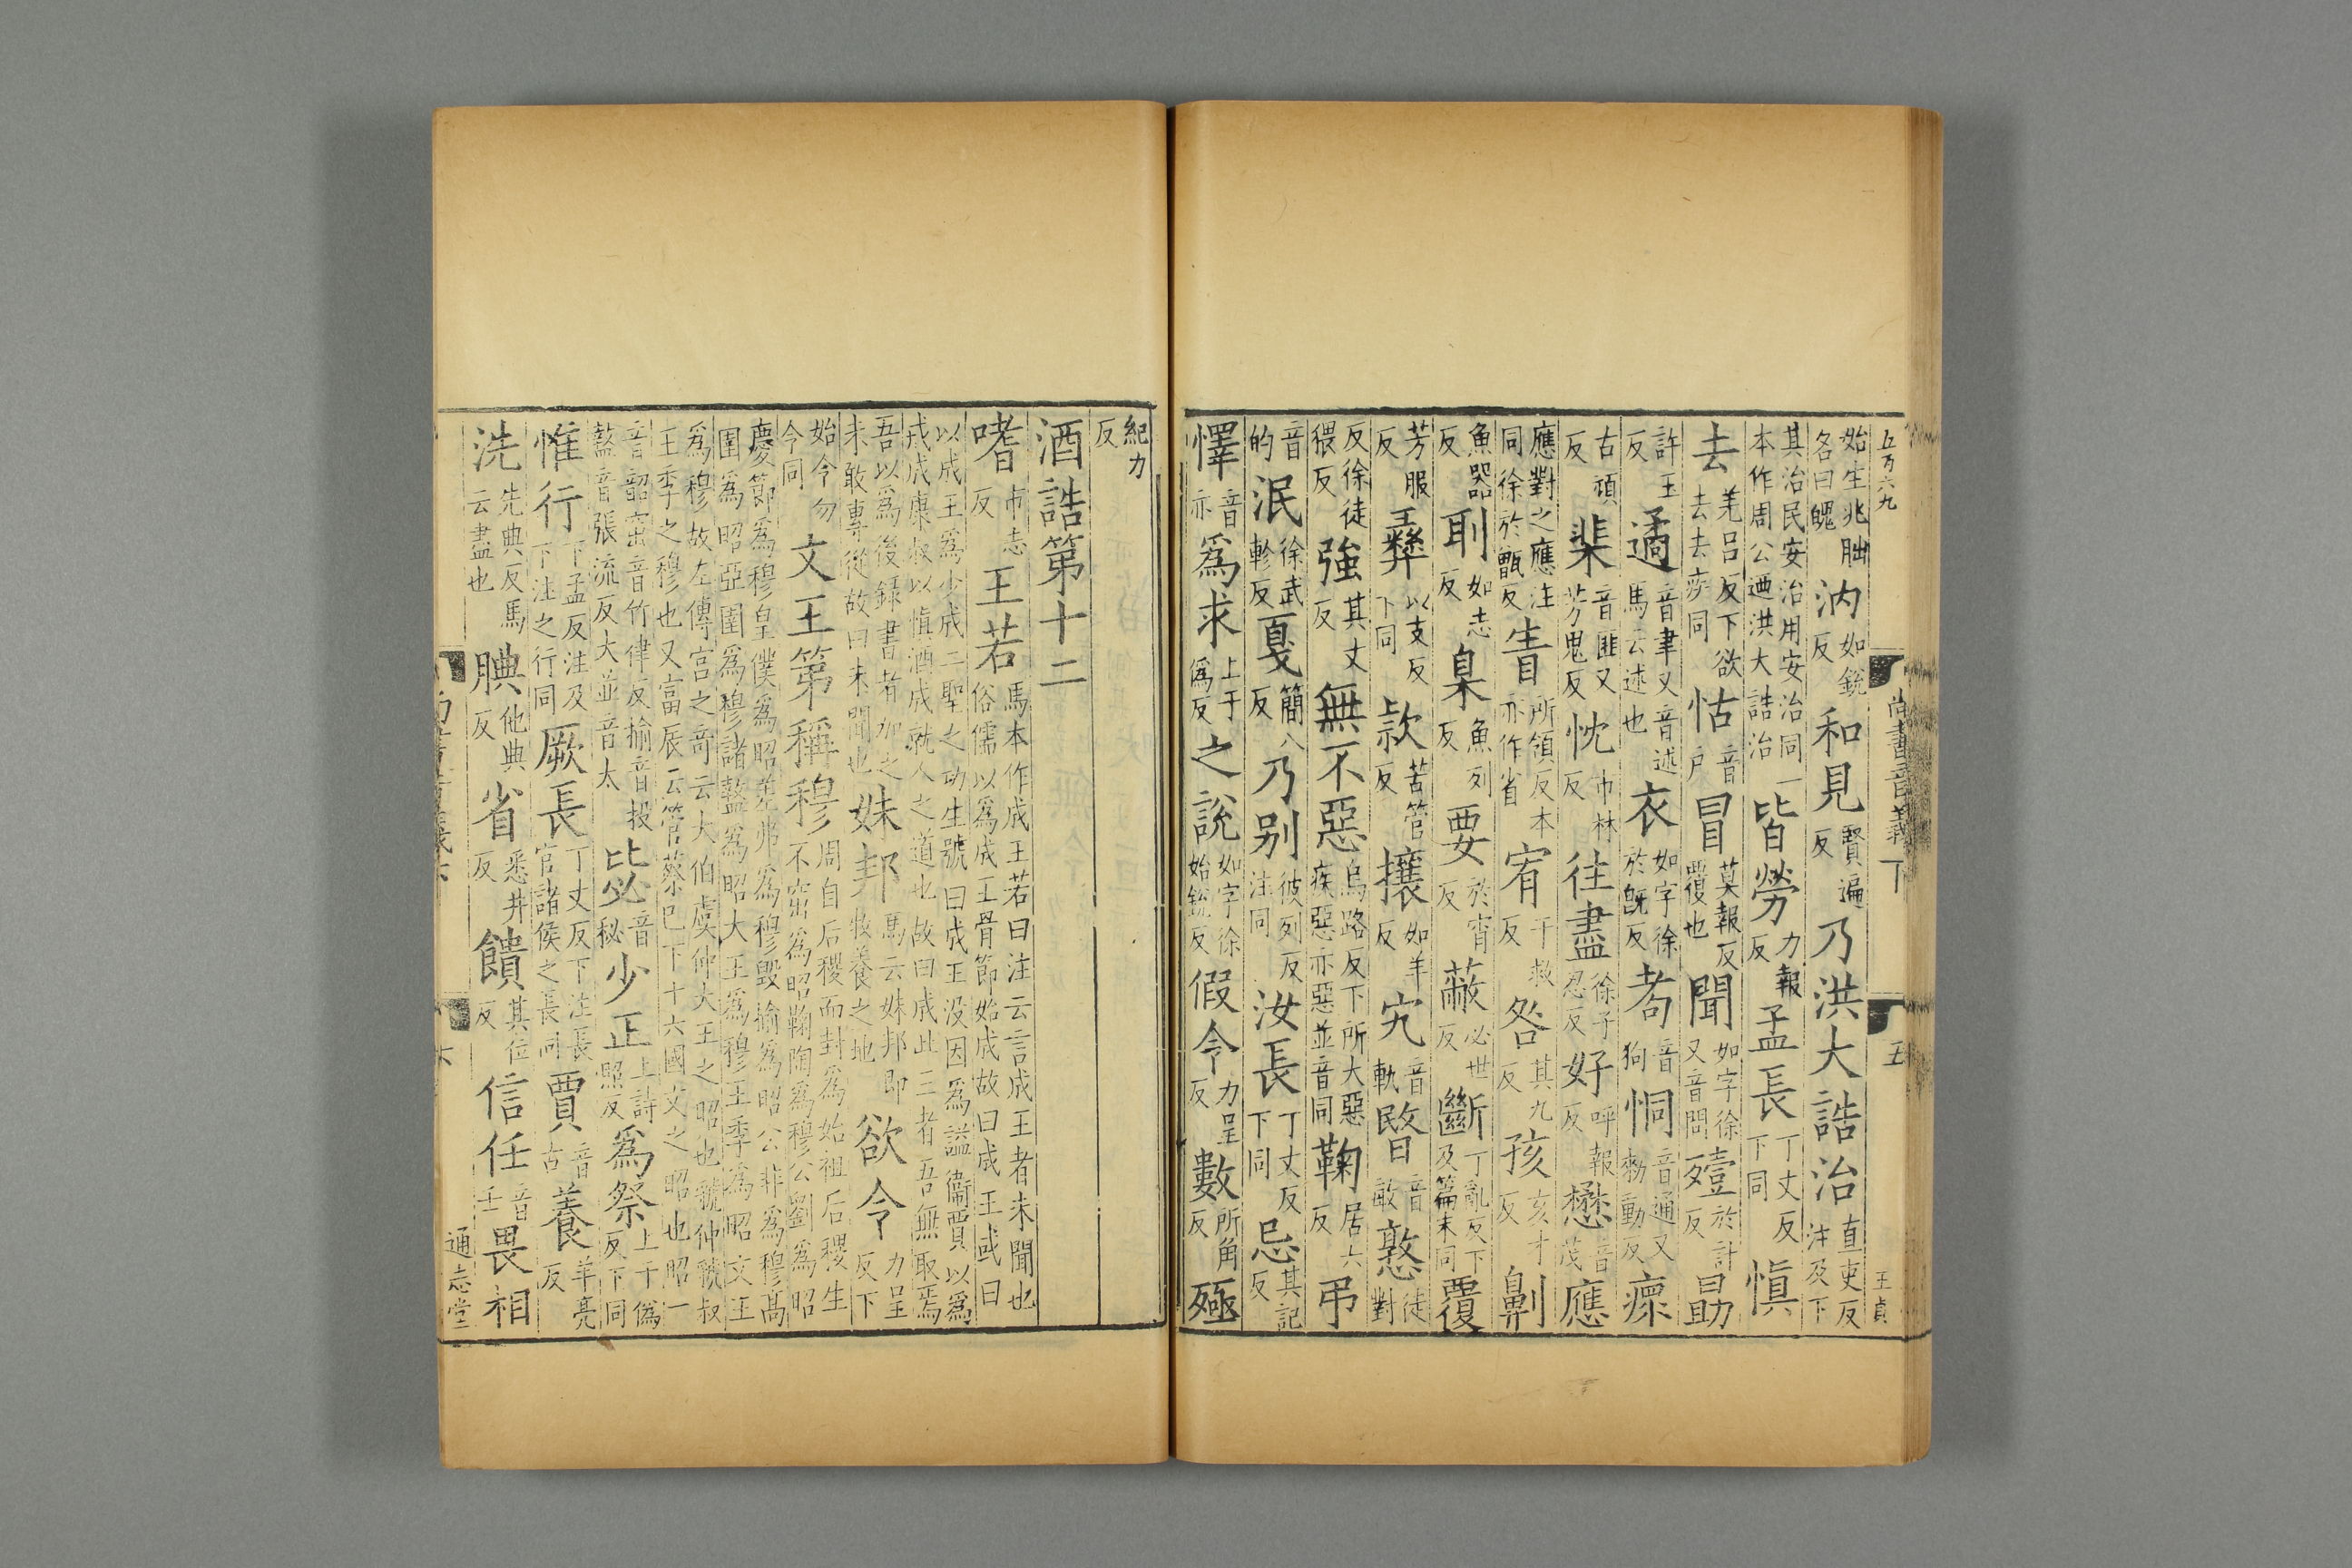 五万六九
尚書音義下
五
王貞
始生兆朏
各曰魄
汭
如銳
反
和見
賢遍
反
乃洪大誥治
直吏反
注及下
其治民安治用安治同一
本作周公迺洪大誥治
皆勞
力報
反
孟長
丁丈反
下同
慎
去
羌呂反下欲
去去疾同
怙
音
户
冒
莫報反
覆也
聞
如字徐
又音問
殪
於計
反
勗
許玉
反
遹
音聿又音述
馬云述也
衣
如字徐
於既反
耇
音
狗
恫
音通又
勑動反
瘝
古頑
反
棐
音匪又
芳鬼反
忱
市林
反
往盡
徐子
忍反
好
呼報
反
懋
音
茂
應
應對之應注
同徐於甑反
眚
所領反本
亦作省
宥
于救
反
咎
其九
反
孩
亥才
反
劓
魚器
反
刵
如志
反
臬
魚列
反
要
於宵
反
蔽
必世
反
斷
丁亂反下
及篇末同
覆
芳服
反
彝
以支反
下同
款
苦管
反
攘
如羊
反
宄
音
軌
暋
音
敏
憝
徒
對
反徐徒
猥反
強
其丈
反
無不惡
烏路反下所大惡
疾惡亦惡並音同
鞠
居六
反
弔
音
的
泯
徐武
軫反
戛
簡八
反
乃别
彼列反
注同
汝長
丁丈反
下同
忌
其記
反
懌
音
亦
爲求
上于
僞反
之說
如字徐
始銳反
假令
力呈
反
數
所角
反
殛
紀力
反
酒誥第十二
嗜
市志
反
王若
馬本作成王若曰注云言成王者未聞也
俗儒以爲成王骨節始成故曰成王或曰
以成王爲少成二聖之功生號曰成王没因爲謚衞賈以爲
戒成康叔以慎酒成就人之道也故曰成此三者吾無取焉
吾以爲後錄書者加之
未敢專從故曰未聞也
妹邦
馬云妹邦即
牧養之地
欲令
力呈
反下
始令勿
今同
文王第稱穆
周自后稷而封爲始祖后稷生
不窋爲昭鞠陶爲穆公劉爲昭
慶節爲穆皇僕爲昭差弗爲穆毀揄爲昭公非爲穆高
圉爲昭亞圉爲穆諸盩爲昭大王爲穆王季爲昭文王
爲穆故左傳宫之奇云大伯虞仲大王之昭也虢仲虢叔
王季之穆也又富辰云管蔡已下十六國文之昭也昭一
音韶窋音竹律反揄音投
盩音張流反大並音太
毖
音
秘
少正
上詩
照反
爲祭
上于僞
反下同
惟行
下孟反注及
下注之行同
厥長
丁丈反下注長
官諸侯之長同
賈
音
古
養
羊亮
反
洗
先典反馬
云盡也
腆
他典
反
省
悉井
反
饋
其位
反
信任
音
壬
畏相
六
通志堂